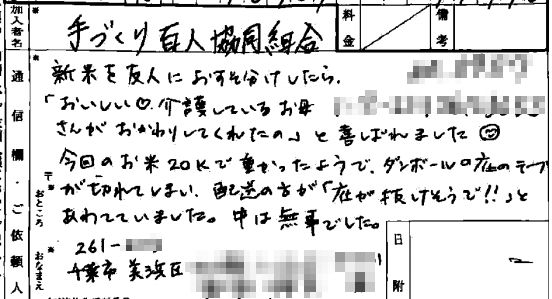 加入者名
手づくり百人協同組合
料金
備考
通信欄・ご依頼人
新米を友人におすそ分けしたら、
「おいしい♡介護しているお母
さんがおかわりしてくれたの」と喜ばれました☺
今回のお米20Kで重かったようで、ダンボールの底のテープ
が切れてしまい、配送の方が「底が抜けそうで!!」と
あわてていました。中は無事でした。
〒
おところ
261-
千葉市美浜区
おなまえ
日附